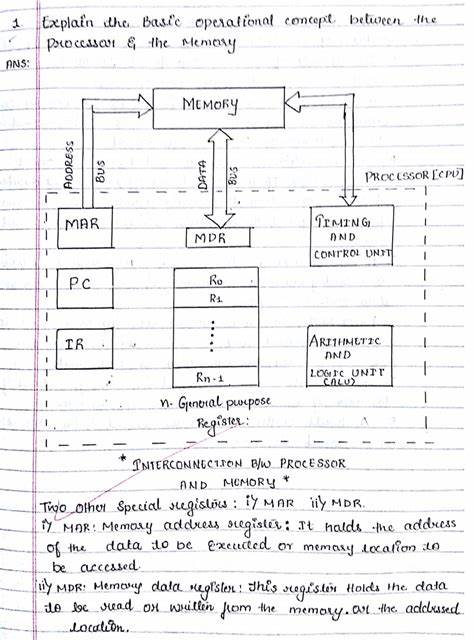 1 Explain the Basic operational concept between the
Processor & the Memory
ANS:
MEMORY
ADDRESS
BUS
DATA
BUS
PROCESSOR [CPU]
MAR
MDR
TIMING
AND
CONTROL UNIT
PC
R0
R1
IR
Rn-1
ARITHMETIC
AND
LOGIC UNIT
(ALU)
n- General purpose
Register:
* INTERCONNECTION B/W PROCESSOR
AND MEMORY *
Two other Special registers: i) MAR ii) MDR.
i) MAR: Memory address register: It holds the address
of the data to be Executed or memory location to
be accessed.
ii) MDR: Memory data register: This register Holds the data
to be read or written from the memory. or the addressed
location.